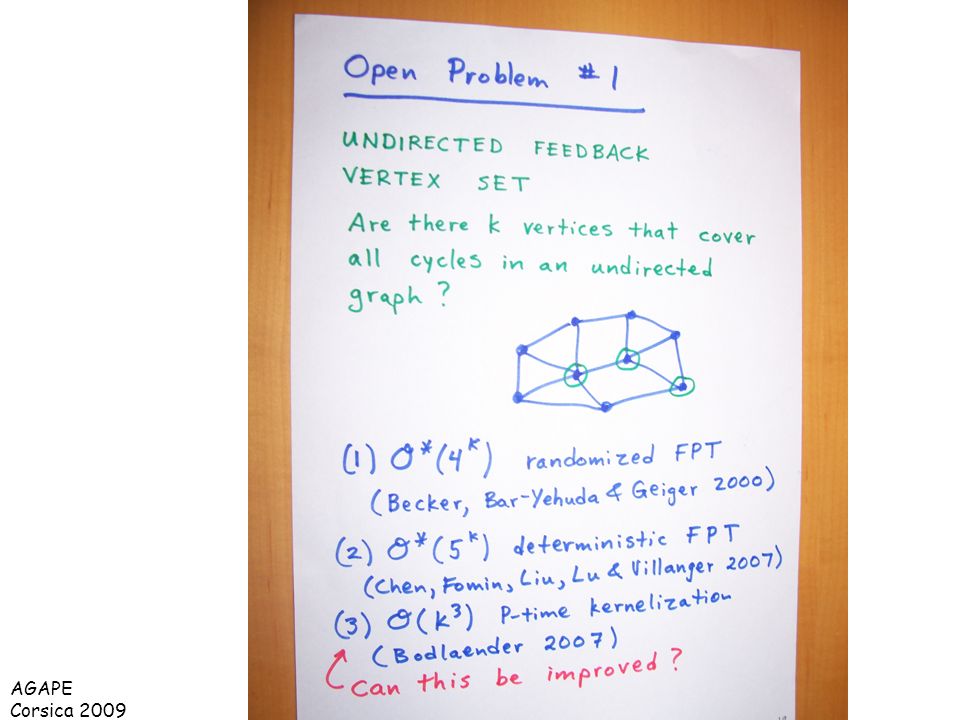 Open Problem #1
UNDIRECTED FEEDBACK
VERTEX SET
Are there k vertices that cover
all cycles in an undirected
graph?
(1) O*(4^k) randomized FPT
(Becker, Bar-Yehuda & Geiger 2000)
(2) O*(5^k) deterministic FPT
(Chen, Fomin, Liu, Lu & Villanger 2007)
(3) O(k^3) P-time kernelization
(Bodlaender 2007)
Can this be improved?
AGAPE
Corsica 2009